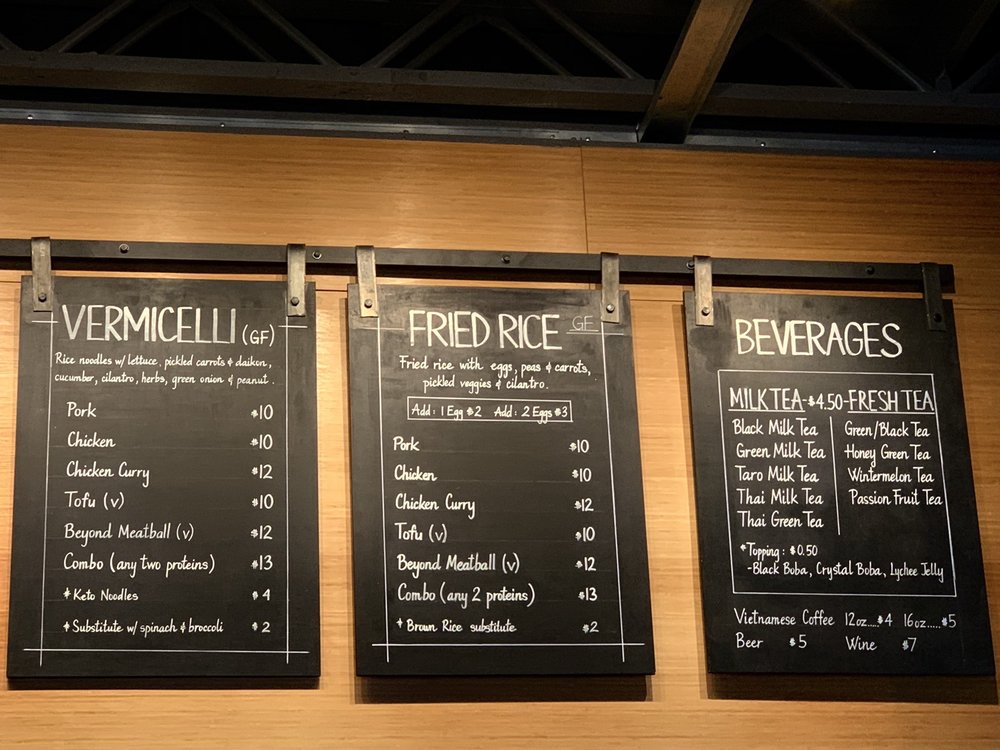 VERMICELLI (GF)
Rice noodles w/ lettuce, pickled carrots & daikon,
cucumber, cilantro, herbs, green onion & peanut.
Pork $10
Chicken $10
Chicken Curry $12
Tofu (v) $10
Beyond Meatball (v) $12
Combo (any two proteins) $13
* Keto Noodles $4
* Substitute w/ spinach & broccoli $2
FRIED RICE GF
Fried rice with eggs, peas & carrots,
pickled veggies & cilantro.
Add: 1 Egg $2 Add: 2 Eggs $3
Pork $10
Chicken $10
Chicken Curry $12
Tofu (v) $10
Beyond Meatball (v) $12
Combo (any 2 proteins) $13
* Brown Rice substitute $2
BEVERAGES
MILK TEA-$4.50-FRESH TEA
Black Milk Tea Green/Black Tea
Green Milk Tea Honey Green Tea
Taro Milk Tea Wintermelon Tea
Thai Milk Tea Passion Fruit Tea
Thai Green Tea
*Topping: $0.50
-Black Boba, Crystal Boba, Lychee Jelly
Vietnamese Coffee 12oz.....$4 16oz.....$5
Beer $5 Wine $7